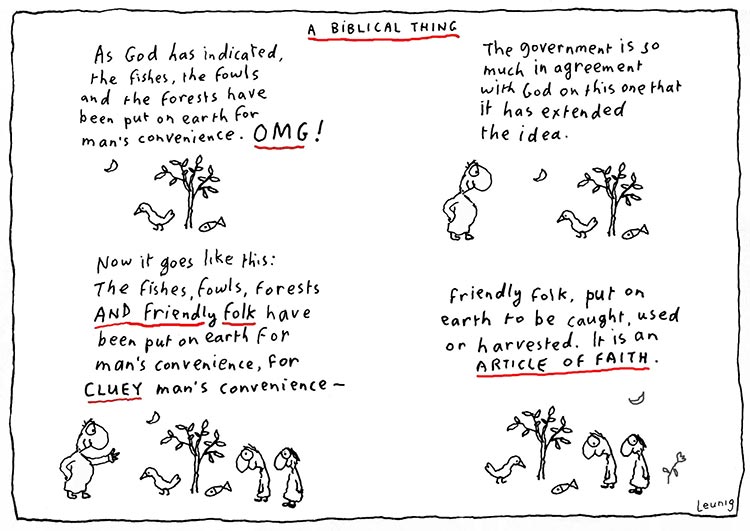 A BIBLICAL THING
As God has indicated,
the fishes, the fowls
and the forests have
been put on earth for
man's convenience. OMG!
The government is so
much in agreement
with God on this one that
it has extended
the idea.
Now it goes like this:
The fishes, fowls, forests
AND friendly folk have
been put on earth for
man's convenience, for
CLUEY man's convenience –
Friendly folk, put on
earth to be caught, used
or harvested. It is an
ARTICLE OF FAITH.
Leunig